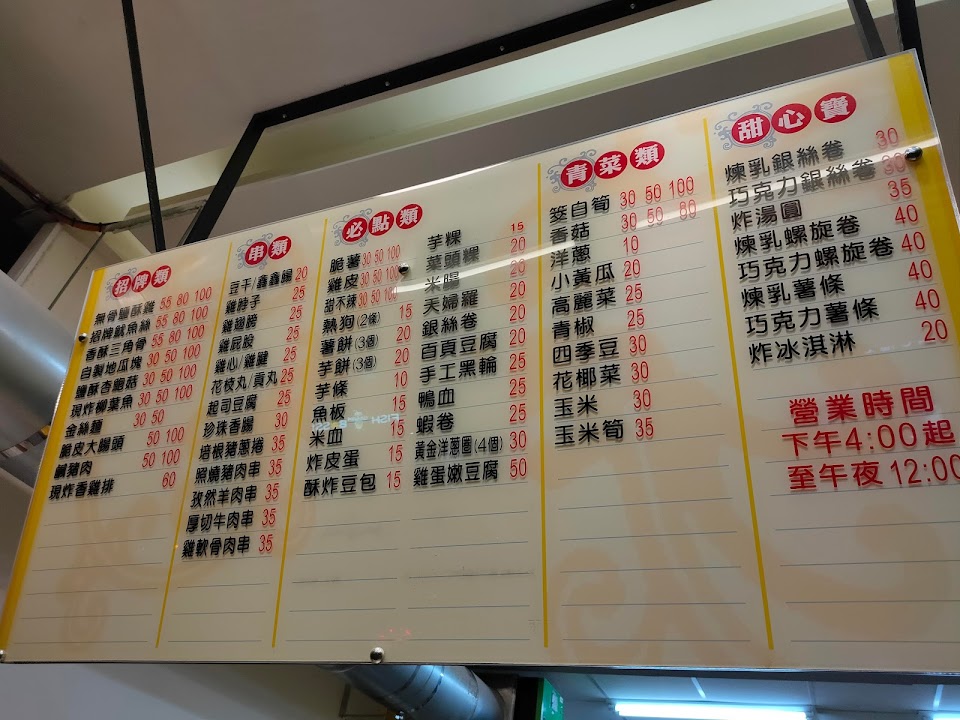 招牌類
無骨鹽酥雞 55 80 100
招牌魷魚絲 55 80 100
香酥三角骨 55 80 100
自製地瓜塊 30 50 100
鹽酥杏鮑菇 30 50 100
現炸柳葉魚 30 50 100
金絲麵 30 50
脆皮大腸頭 50 100
鹹豬肉 50 100
現炸香雞排 60
串類
豆干/鑫鑫腸 20
雞脖子 25
雞翅膀 25
雞屁股 25
雞心/雞腱 25
花枝丸/貢丸 25
起司豆腐 25
珍珠香腸 30
培根豬蔥捲 35
照燒豬肉串 35
孜然羊肉串 35
厚切牛肉串 35
雞軟骨肉串 35
必點類
脆薯 30 50 100
雞皮 30 50 100
甜不辣 30 50 100
熱狗(2條) 15
薯餅(3個) 20
芋餅(3個) 20
芋條 10
魚板 15
米血 15
炸皮蛋 15
酥炸豆包 15
芋粿 15
菜頭粿 20
米腸 20
天婦羅 20
銀絲卷 20
百頁豆腐 20
手工黑輪 25
鴨血 25
蝦卷 25
黃金洋蔥圈(4個) 30
雞蛋嫩豆腐 50
青菜類
筊白筍 30 50 100
香菇 30 50 80
洋蔥 10
小黃瓜 20
高麗菜 25
青椒 25
四季豆 30
花椰菜 30
玉米 30
玉米筍 35
甜心寶
煉乳銀絲卷 30
巧克力銀絲卷 30
炸湯圓 35
煉乳螺旋卷 40
巧克力螺旋卷 40
煉乳薯條 40
巧克力薯條 40
炸冰淇淋 20
營業時間
下午4:00起
至午夜12:00